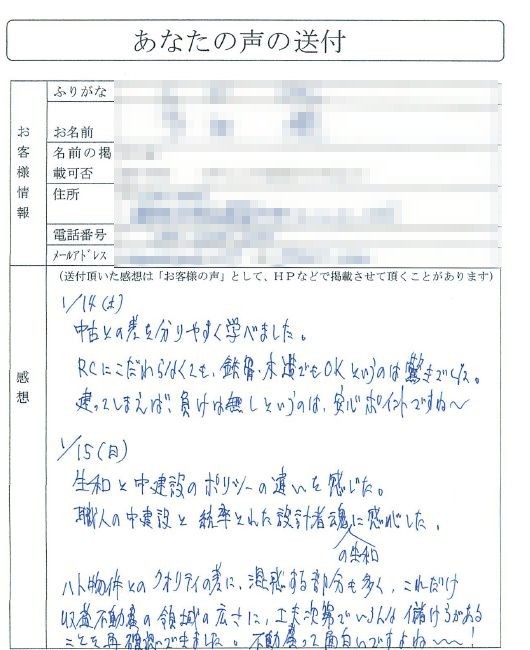 あなたの声の送付
お客様情報
ふりがな
お名前
名前の掲
載可否
住所
電話番号
メールアドレス
感想
(送付頂いた感想は「お客様の声」として、HPなどで掲載させて頂くことがあります)
1/14(土)
中古との差を分りやすく学べました。
RCにこだわらなくても、鉄骨・木造でもOKというのは驚きでした。
建ってしまえば、負けは無しというのは、安心ポイントですね〜
1/15(日)
生和と中建設のポリシーの違いを感じた。
職人の中建設と統率とれた設計者魂に感心した。
の生和
ハト物件とのクオリティの差に、退
収益不動産の領域の広さに、工夫次第でいろんな儲けうがある
ことを再確認できました。不動産って面白いですよね〜〜!